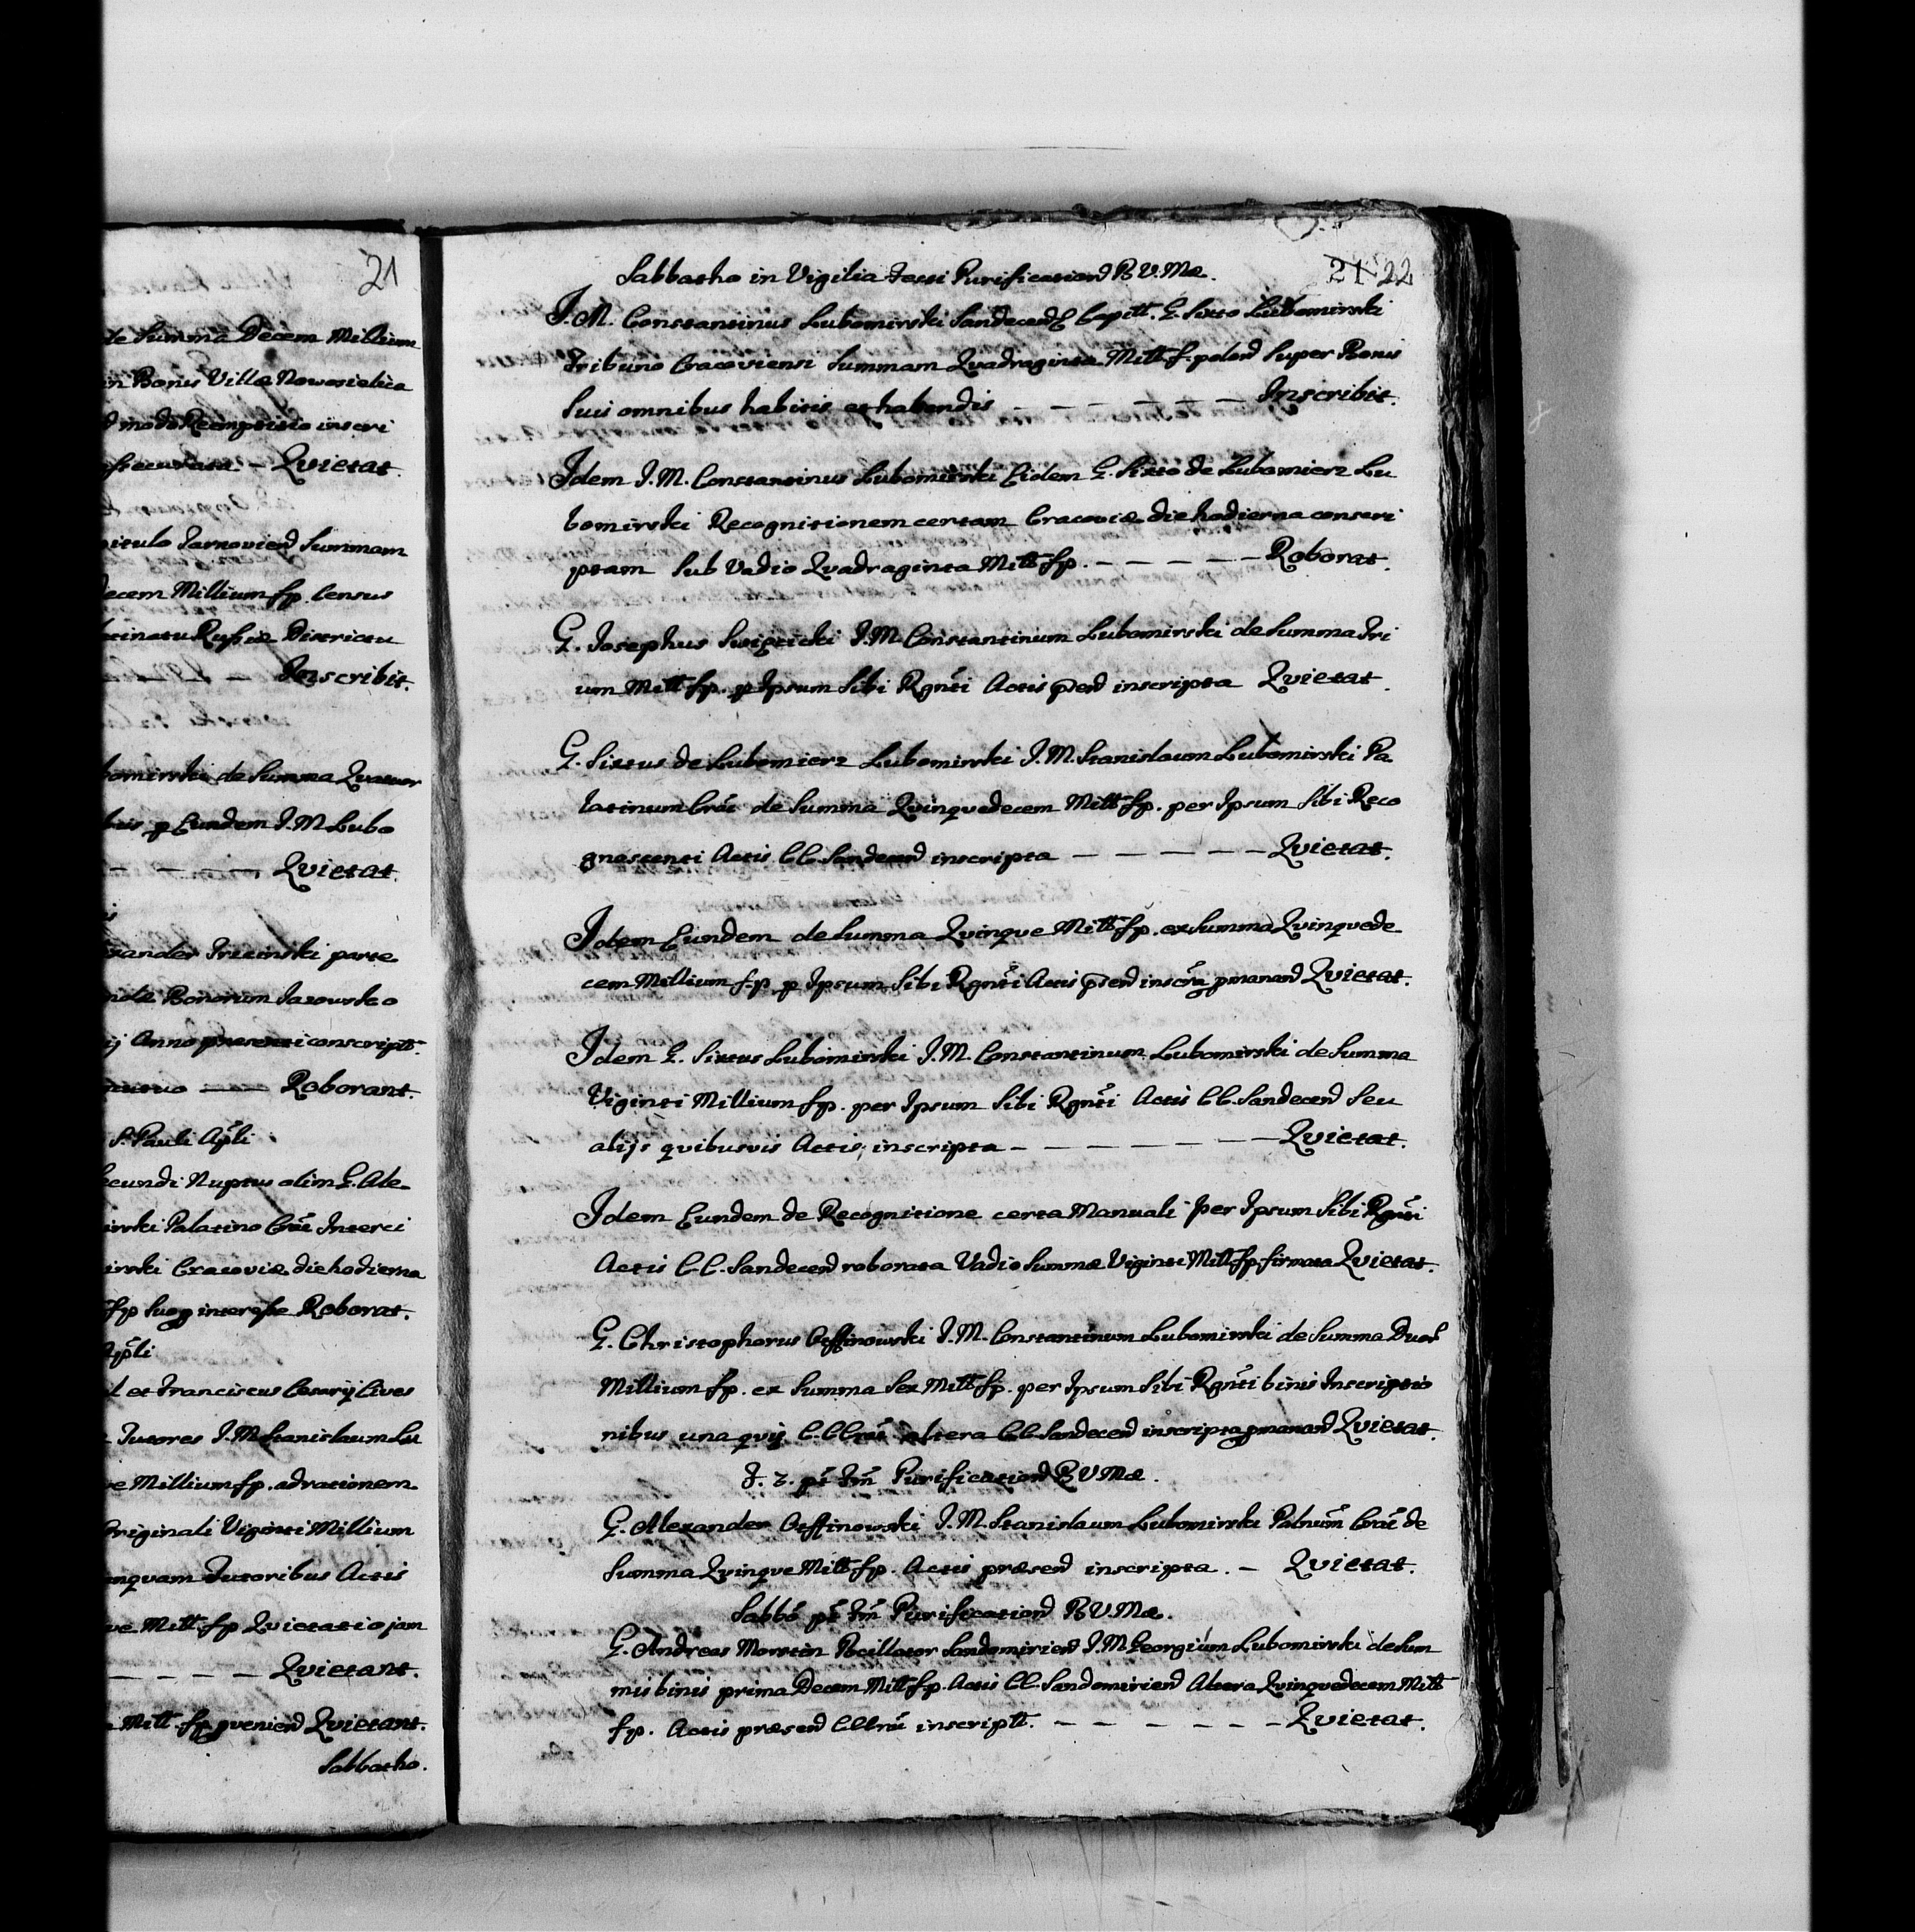 21
de Summa Decem Millium
in Bonis Villæ Nowosielica
modo Reemptitio inscri
Qvietat.
pitulo Tarnoviens Summam
decem Millium fp. Census
latinatu Russiæ Districtu
Inscribit.
bomirski de Summa Qvatuor
Eundem J. M. Lubo
Qvietat.
xander Trzcinski parte
Bonorum Jazowsko
Anno præsenti conscript.
Roborant.
S. Pauli Apli
secundi Nuptus olim G. Ale-
irski Palatino Crac Interci
irski Cracoviæ die hodierna
fp Suoq interesse Roborat.
Apli
et Franciscus Cesarij Cives
Tutores J. M. Stanislaum Lu
Millium fp. ad rationem
Originali Viginti Millium
nquam Tutoribus Actis
Mill. fp Qvietatio jam
Qvietant.
Mill. fp pveniend Qvietant.
Sabbatho.
21 22
Sabbatho in Vigilia Festi Purificationis B. V. Mæ.
J. M. Constantinus Lubomirski Sandecens Capitt. G. Sixto Lubomirski
Tribuno Cracoviensi Summam Qvadraginta Mill. f. polon Super Bonis
Suis omnibus habitis et habendis — — — — — — Inscribit.
Idem J. M. Constantinus Lubomirski Eidem G. Sixto de Lubomierz Lu
bomirski Recognitionem certam Cracoviæ die hodierna conscri
ptam Sub Vadio Qvadraginta Mill fp. — — — — — Roborat.
G. Josephus Swięcicki J. M. Constantinum Lubomirski de Summa Tri
um Mill fp. p Ipsum Sibi Rgnti Actis psend inscripta Qvietat.
G. Sixtus de Lubomierz Lubomirski J. M. Stanislaum Lubomirski Pa
latinum Crac de Summa Qvinqvedecem Mill fp. per Ipsum Sibi Reco
gnoscenti Actis CC. Sandecens inscripta — — — — — — Qvietat.
Idem Eundem de Summa Qvinqve Mill fp. ex Summa Qvinqvede
cem Millium f. p p Ipsum Sibi Rgnti Actis psend inscra pmanand Qvietat.
Idem G. Sixtus Lubomirski J. M. Constantinum Lubomirski de Summa
Viginti Millium fp. per Ipsum Sibi Rgnti Actis CC. Sandecend Seu
alijs qvibusvis Actis inscripta — — — — — — — Qvietat.
Idem Eundem de Recognitione certa Manuali per Ipsum Sibi Rgnti
Actis CC. Sandecend roborata Vadio Summæ Viginti Mill fp. firmata Qvietat.
G. Christophorus Otffinowski J. M. Constantinum Lubomirski de Summa Duor
Millium fp. ex Summa Sex Mill fp. per Ipsum Sibi Rgnti binis Inscriptio
nibus una altera CC Sandecend inscripta pmanand Qvietat.
F. 3. pt Fm Purificationd B V Mæ.
G. Alexander Otffinowski J. M. Stanislaum Lubomirski Palnum Crac de
Summa Qvinqve Mill fp. Actis præsend inscripta. — Qvietat.
Sabbo pt Fm Purificationd B V. Mæ.
G. Andreas Morstin Pocillator Sandomiriend J. M. Georgium Lubomirski de Sum
mis binis prima Decem Mill fp. Actis CC. Sandomiriend Altera Qvinqvedecem Mill
fp. Actis præsend inscriptt. — — — — — — Qvietat.